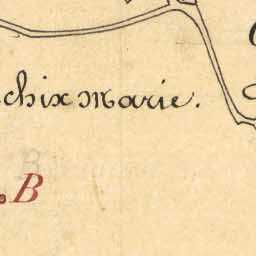 chix Marie.
.B